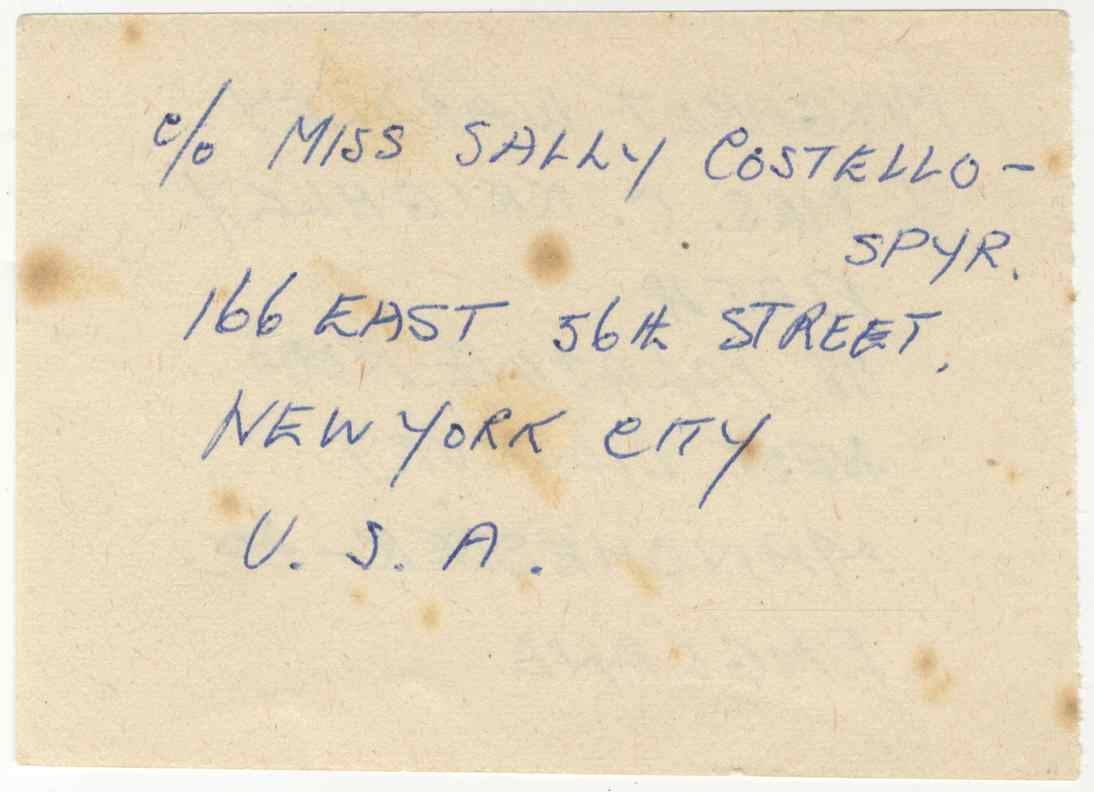 c/o MISS SALLY COSTELLO -
SPYR.
166 EAST 56th STREET.
NEW YORK CITY
U. S. A.